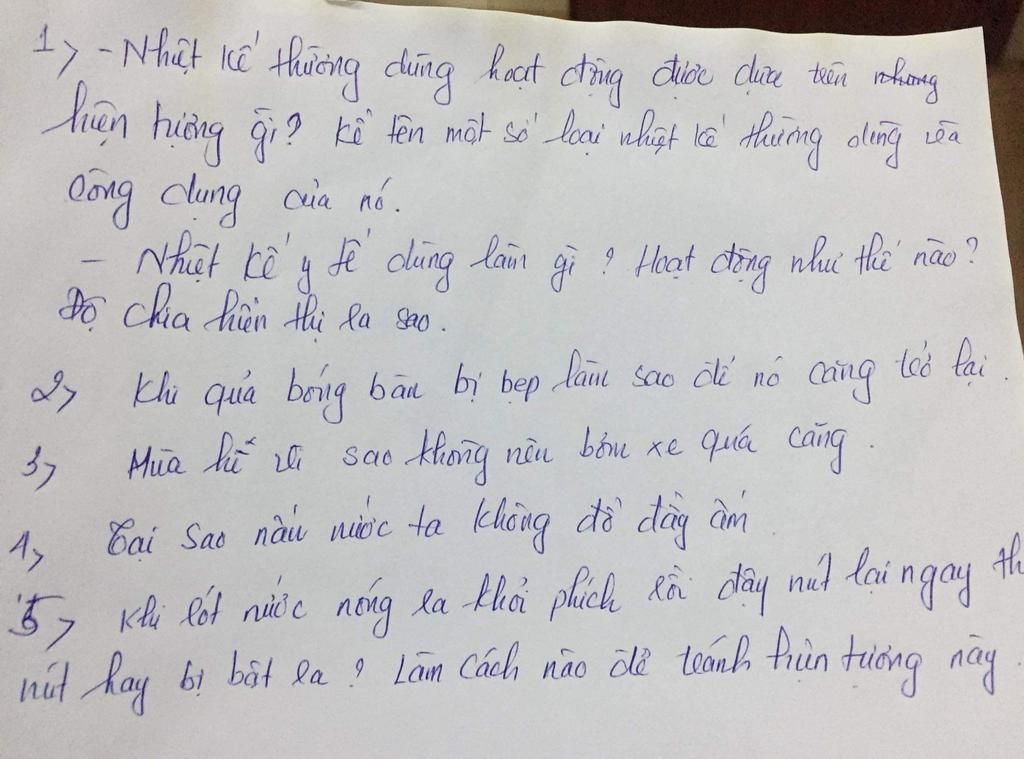 1> - Nhiệt kế thường dùng hoạt động được dựa trên nhưng
hiện tượng gì? Kể tên một số loại nhiệt kế thường dùng và
công dụng của nó.
- Nhiệt kế y tế dùng làm gì? Hoạt động như thế nào?
Độ chia hiển thị ra sao.
2> Khi quả bóng bàn bị bẹp làm sao để nó căng trở lại.
3> Mùa hè vì sao không nên bơm xe quá căng.
4> Tại sao nấu nước ta không đổ đầy ấm
5> Khi rót nước nóng ra khỏi phích rồi đậy nút lại ngay th
nút hay bị bật ra? Làm cách nào để tránh hiện tượng này.